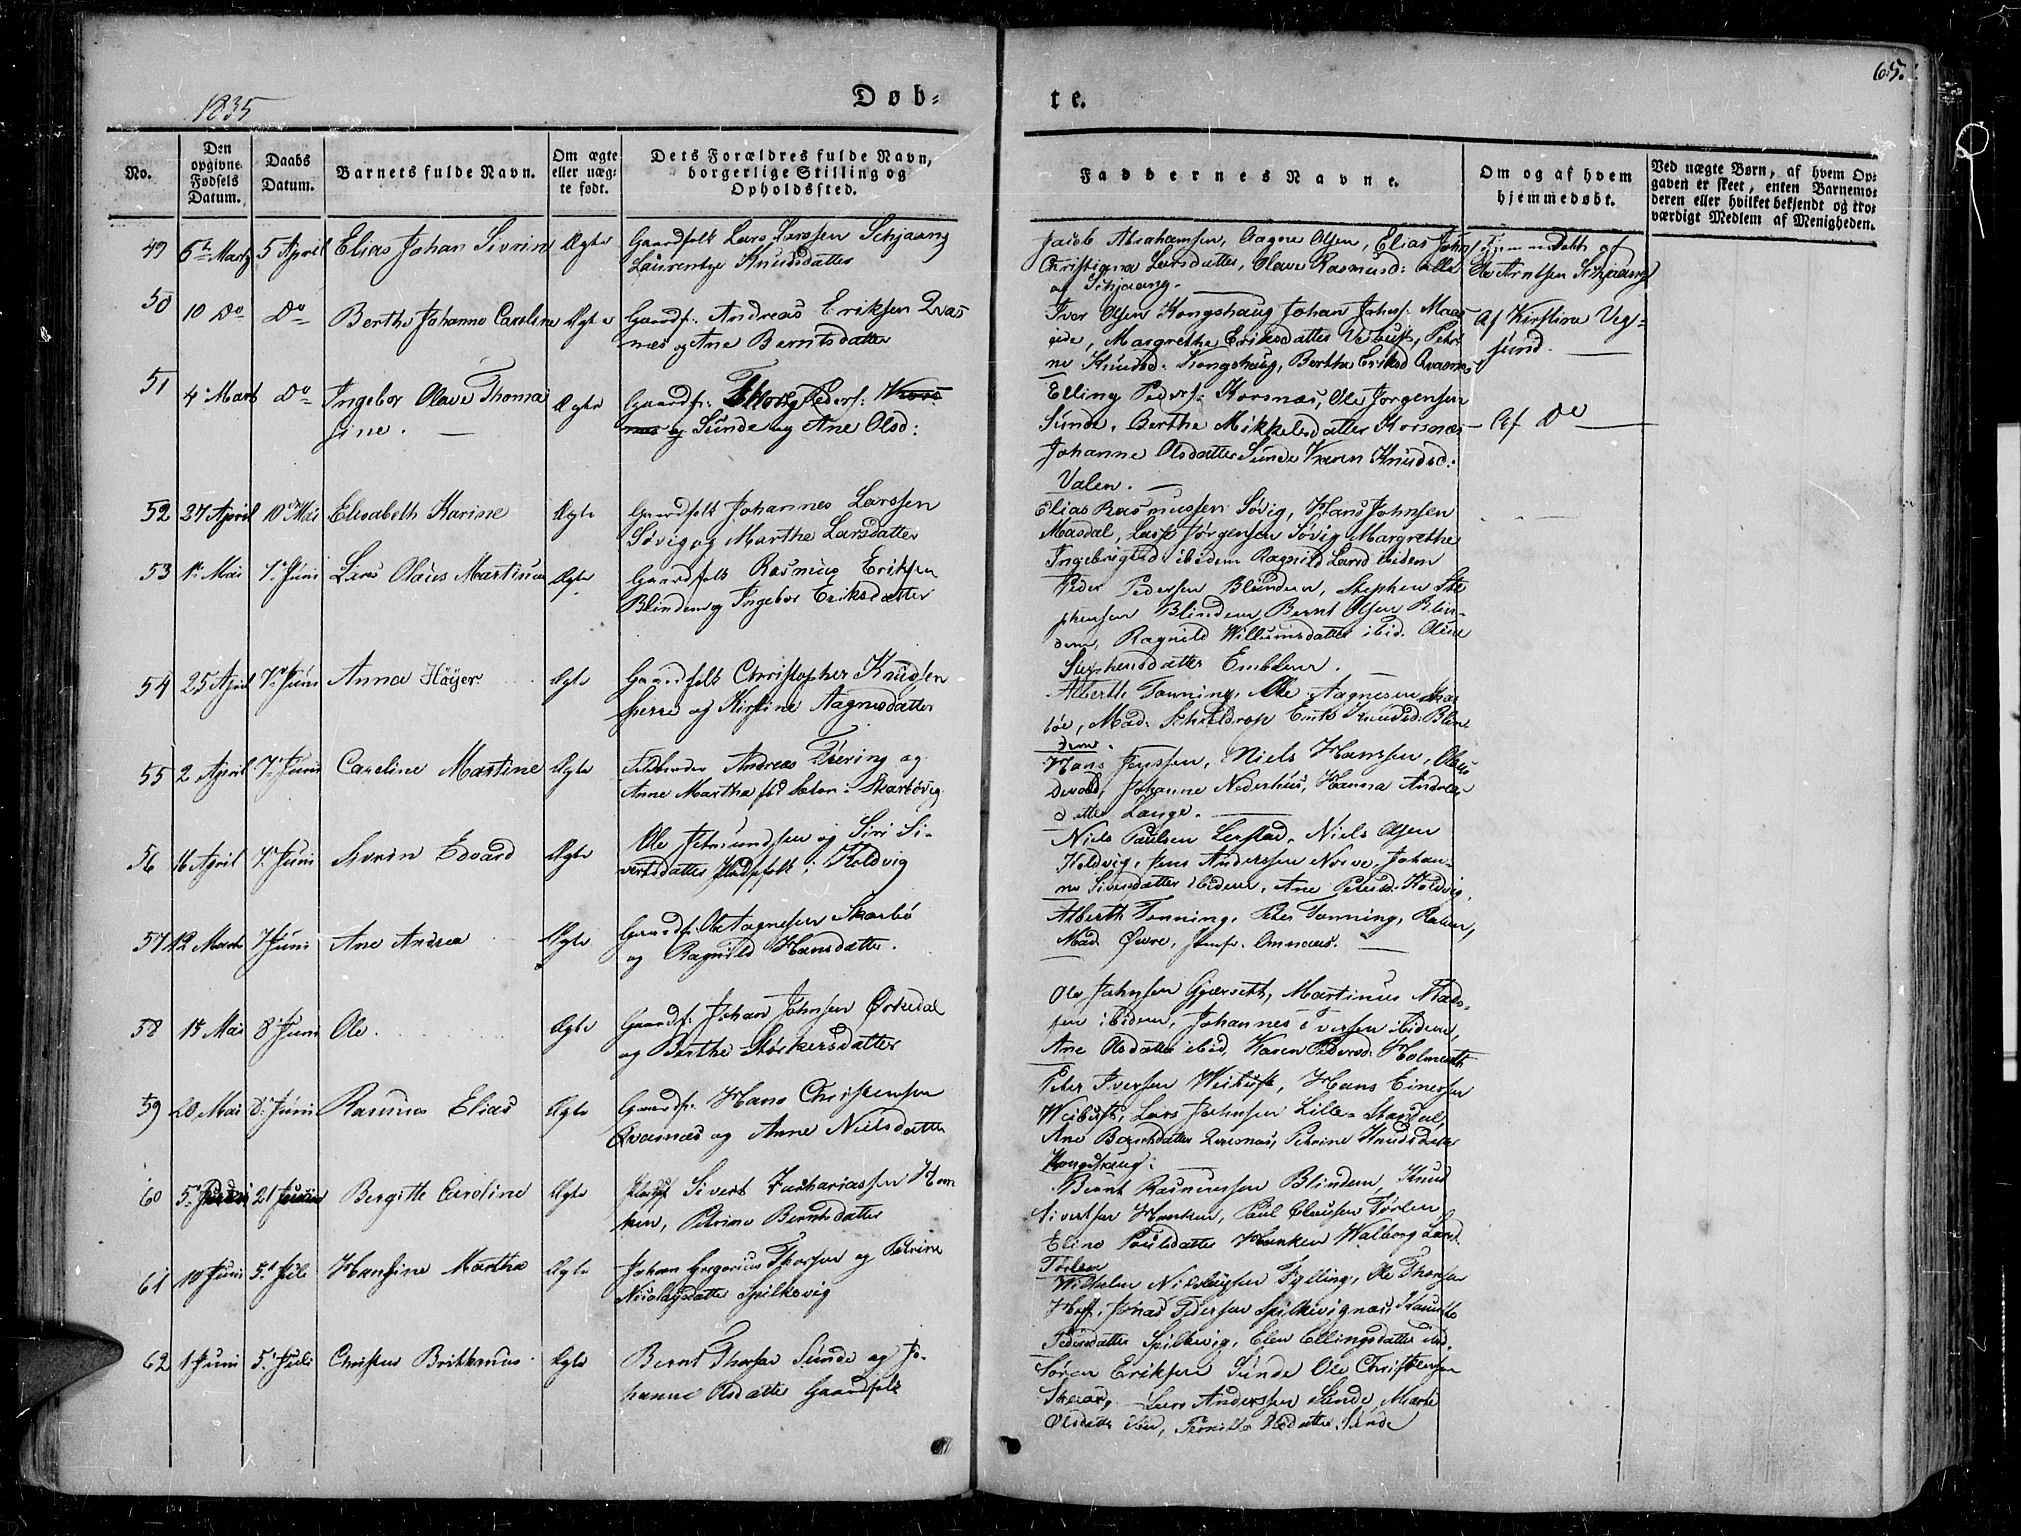 65.
1835
Døb=
te.
No.
Den opgivne Fødsels Datum.
Daabs Datum.
Barnets fulde Navn.
Om ægte eller uæg= te født.
Dets Forældres fulde Navn, borgerlige Stilling og Opholdssted.
Faddernes Navne.
Om og af hvem hjemmedøbt.
Ved uægte Børn, af hvem Op= gaven er skeet, enten Barnemo= deren eller hvilket bekjendt og tro= værdigt Medlem af Menigheden.
49 6te Marts 5 April Elias Johan Sivrin Ægte Gaardfolk Lars Larssen Schjaang
Laurentze Knudsdatter
Jacob Abrahamsen, Aagne Olsen, Elias Joh
Christigna Larsdatter, Olave Rasmusd: alle
af Schjaang.
Hjemmedøbt af
Ole Arntsen Schjaang
50 10 Do Do Berthe Johanne Caroline Ægte Gaardf. Andreas Eriksen Qvas
næs og Ane Berntsdatter
Iver Olsen Kongshaug Johan Johns: Maas
eide, Margrethe Eriksdatter Veibust, Petri
ne Knudsd: Kongshaug, Berthe Eriksd Qvasnæs
Af Kirstina Veg=
sund.
51 4 Mart Do Ingebor Olave Thoma
sine. Ægte Gaardf: Thorsten Peders: Kors
næs og Sunde og Ane Olsd:
Elling Peders: Korsnæs, Ole Jørgensen
Sunde, Berthe Mikkelsdatter Korsnæs
Johanne Olsdatter Sunde Karen Knudsd:
Valen.
Af Do
52 27 April 10de Mai Elisabeth Karine Ægte Gaardfolk Johannes Larssen
Søvig og Marthe Larsdatter
Elias Rasmussen Søvig, Hans Johnsen
Masdal, Lars Jørgensen Søvig Margrethe
Ingebrigtsd ibidem Ragnild Larsd ibidem
53 1 Mai 7 Juni Lars Olaus Martinus Ægte Gaardfolk Rasmus Eriksen
Blindem og Ingebor Eriksdatter
Peder Pedersen Blindem, Stephen Ste
phensen Blindem Bernt Olsen Blin=
dem, Ragnild Willumsdatter ibid. Oline
Stephensdatter Emblem.
54 25 April 7 Juni Anna Høyer Ægte Gaardfolk Christopher Knudsen
Sperre og Kirstine Aagnesdatter
Alberth Tonning, Ole Aagnesen Skar
bøe, Mad: Schieldrop Eriks Knudsd: Blin
dem.
55 2 April 7 Juni Caroline Martine Ægte Feldbereder Andreas Fiering og
Anne Martha fød Sølen: Skarbøvig
Hans Jenssen, Niels Hanssen, Olaus
Devold, Johanne Nederhus, Hanna Andreas
datter Lange.
56 16 April 7 Juni Sivrin Edvard Ægte Ole Johnsen og Siri Si=
vertsdatter Pladsfolk i Holdvig
Niels Paulsen Lerstad, Niels Olsen
Holdvig, Jens Anderssen Norve, Johan=
ne Sivertsdatter ibidem, Ane Petersd: Holdvig.
57 12 Marts 7 Juni Ane Andrea Ægte Gaardf: Ole Aagnesen Skarbø
og Ragnild Hansdatter.
Alberth Tonning, Peter Tonning,
Mad: Øwre, Jomfr. Omnæus.
58 15 Mai 8 Juni Ole. Ægte Gaardf: Johan Johnsen Ørkedal
og Berthe Størkersdatter
Ole Johnsen Gjærsett, Martinus Mads=
sen ibidem, Johannes Iversen ibidem,
Ane Olsdatter ibid, Karen Pedersd: Holmeseth
59 20 Mai 8 Juni Rasmus Elias Ægte Gaardf: Hans Christensen
Qvasnæs og Anne Nielsdatter
Peter Iversen Weibust, Hans Einersen
Weibust, Lars Johnsen Lille=Standal,
Ane Berntsdatter Qvasnæs, Petrine Knudsdatter
Kongshaug.
60 5 Juni 21 Juni Bergitte Caroline Ægte Pladsf Sivert Zachariassen Hon
ken, Petrine Berntsdatter
Bernt Rasmussen Blindem, Knud
Sivertsen Honken, Paul Clausen Tørlen
Eline Paulsdatter Honken Walborg Larsd.
Tørlen
61 10 Juni 5 Juli Hansine Martha Ægte Johan Gregorius Thorsen og Petrine
Nicolaysdatter Spilkevig
Wilhelm Nicolaysen Fylling, Ole Thorsen
Hoff, Jonas Pedersen Spilkevignæs,
Pedersdatter Spilkevig, Elen Ellingsdatter ibid.
62 1 Juni 5 Juli Christen Brithanus Ægte Bernt Thorsen Sunde og Jo=
hanne Olsdatter Gaardfolk
Søren Eriksen Sunde Ole Christensen
Skeiar, Lars Anderssen Sunde, Marte
Olsdatter ibid, Pernille Olsdatter Sunde